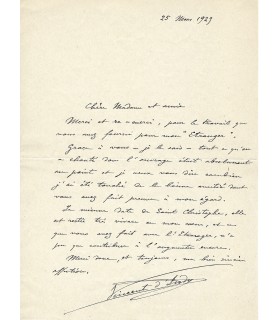 25 Mars 1929
Chère Madame et amie
Merci et re-merci, pour le travail que
vous avez fourni pour mon "Etranger".
Grâce à vous - je le sais - tout ce qu'on
a chanté dans l'ouvrage était absolument
au point et je veux vous dire combien
j'ai été touché de la bonne amitié dont
vous avez fait preuve à mon égard.
La même date de Saint Christophe, elle
est restée très vivace en mon cœur, et ce
que vous avez fait avec l'Etranger, n'a
pu que contribuer à l'augmenter encore.
Merci donc, et toujours, en bien sincère
affection.
Vincent d'Indy